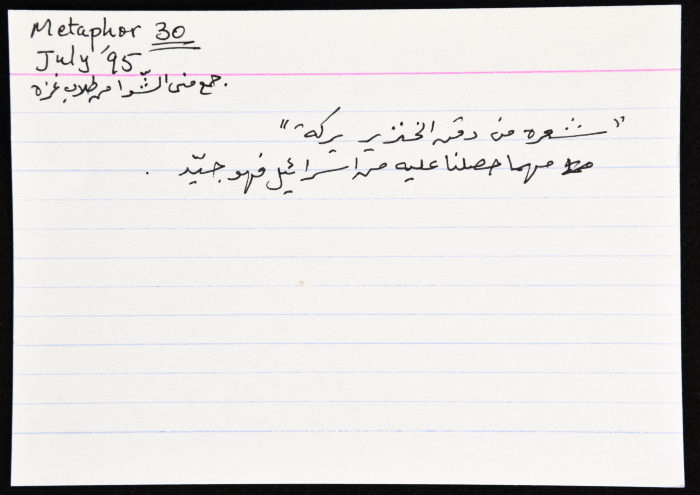 Metaphor 30
July '95
جمع منى الشّوا من طلاب غزه.
"شعره من دقن الخنزير بركة"
مهما حصلنا عليه من اسرائيل فهو جيّد.